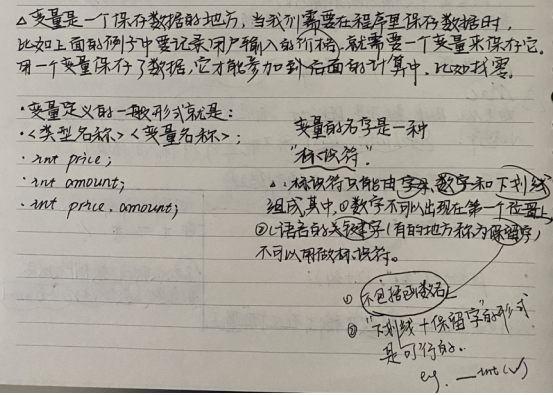 △变量是一个保存数据的地方,当我们需要在程序里保存数据时,
比如上面的例子中要记录用户输入的价格,就需要一个变量来保存它。
用一个变量保存了数据,它才能参加到后面的计算中,比如找零。
·变量定义的一般形式就是:
·<类型名称><变量名称>;
·int price;
·int amount;
·int price.amount;
变量的名字是一种
"标识符"。
△:标识符只能由字母、数字和下划线
组成其中,①数字不可以出现在第一个位置上
②C语言的关键字(有的地方称为保留字)
不可以用做标识符。
① 不包括函数名
② "下划线+保留字"的形式
是可行的.
eg. _int(√)